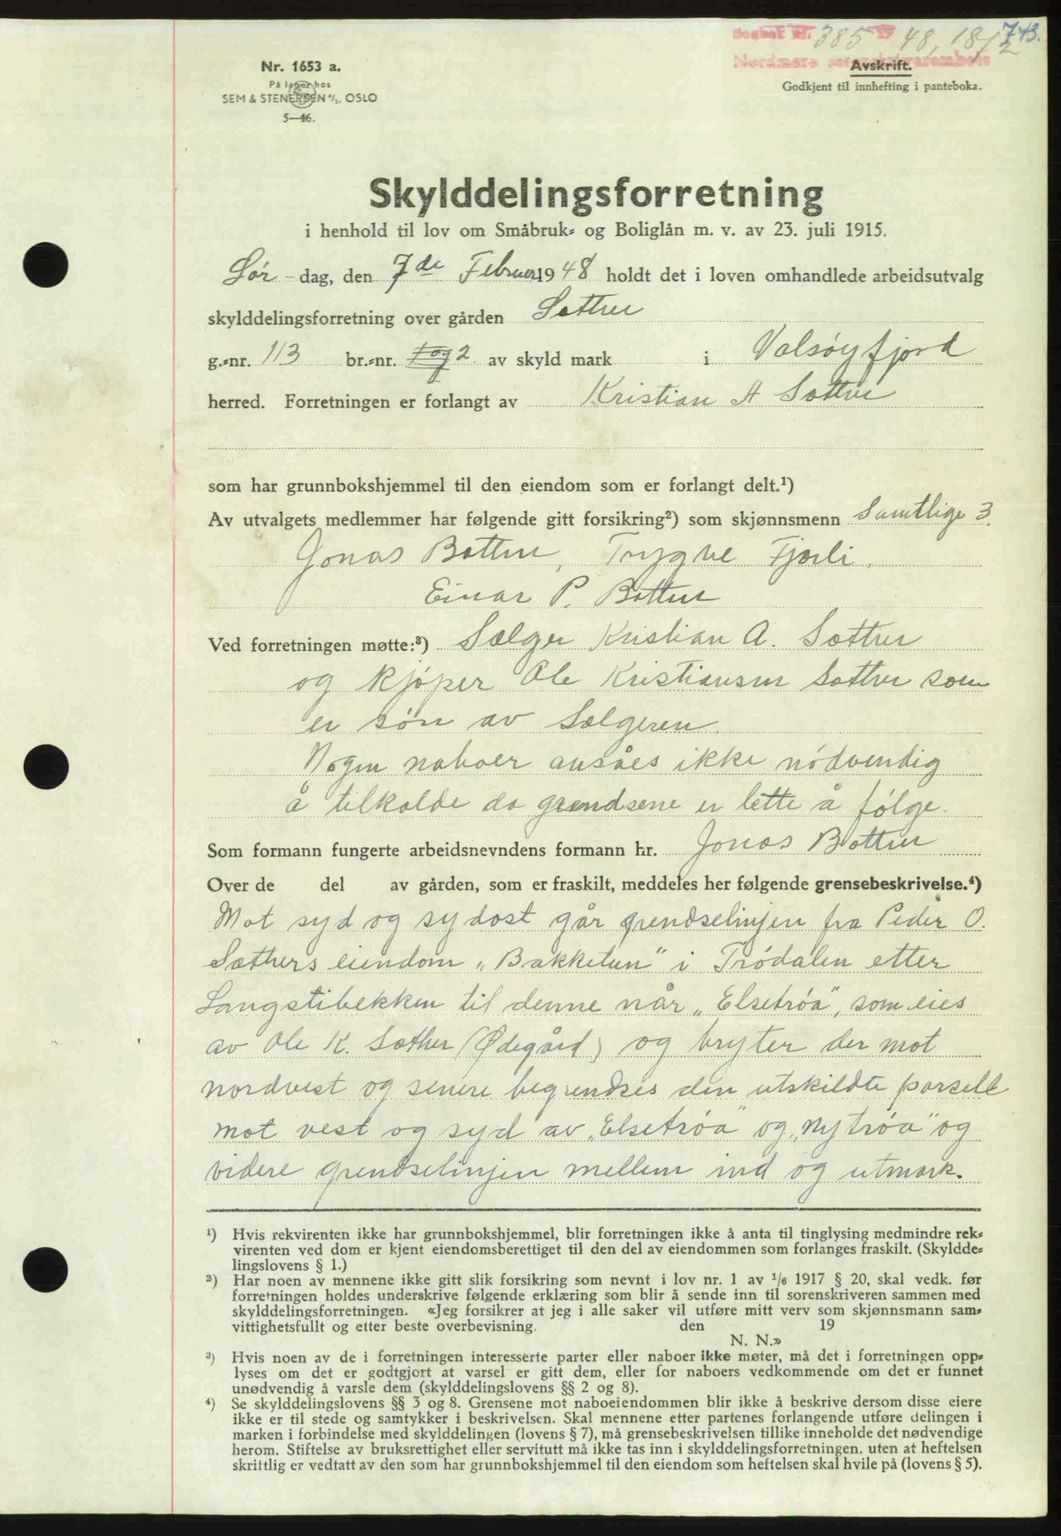 Dagbok nr. 385 19 48, 18/2 743.
Nordmøre sorenskriverembete
Nr. 1653 a.
På lager hos
SEM & STENERSEN A/S. OSLO
5—46.
Avskrift.
Godkjent til innhefting i panteboka.
Skylddelingsforretning
i henhold til lov om Småbruk- og Boliglån m. v. av 23. juli 1915.
Lør-dag, den 7de Februar 1948 holdt det i loven omhandlede arbeidsutvalg
skylddelingsforretning over gården Sæther
g.-nr. 113 br.-nr. 1 og 2 av skyld mark i Valsøyfjord
herred. Forretningen er forlangt av Kristian A Sæther
som har grunnbokshjemmel til den eiendom som er forlangt delt.¹)
Av utvalgets medlemmer har følgende gitt forsikring²) som skjønnsmenn Samtlige 3.
Jonas Botten, Trygve Fjærli.
Einar P. Botten
Ved forretningen møtte:³) Sælger Kristian A. Sæther
og kjøper Ole Kristiansen Sæther som
er søn av Sælgeren.
Nogen naboer ansåes ikke nødvendig
å tilkalde da grendsene er lette å følge.
Som formann fungerte arbeidsnevndens formann hr. Jonas Botten
Over de del av gården, som er fraskilt, meddeles her følgende grensebeskrivelse.⁴)
Mot syd og sydost går grendselinjen fra Peder O.
Sæthers eiendom „Bakketun" i Trødalen etter
Langstibekken til denne når „Elsetrøa", som eies
av Ole K. Sæther (Ødegård) og bryter der mot
nordvest og senere begrendses den utskildte parsell
mot vest og syd av „Elsetrøa" og „Nytrøa" og
videre grendselinjen mellem ind og utmark.
¹) Hvis rekvirenten ikke har grunnbokshjemmel, blir forretningen ikke å anta til tinglysing medmindre rek-
virenten ved dom er kjent eiendomsberettiget til den del av eiendommen som forlanges fraskilt. (Skyldde-
lingslovens § 1.)
²) Har noen av mennene ikke gitt slik forsikring som nevnt i lov nr. 1 av 1/6 1917 § 20, skal vedk. før
forretningen holdes underskrive følgende erklæring som blir å sende inn til sorenskriveren sammen med
skylddelingsforretningen. «Jeg forsikrer at jeg i alle saker vil utføre mitt verv som skjønnsmann sam-
vittighetsfullt og etter beste overbevisning. den 19
N. N.»
³) Hvis noen av de i forretningen interesserte parter eller naboer ikke møter, må det i forretningen opp-
lyses om det er godtgjort at varsel er gitt dem, eller for naboers vedkommende om det er funnet
unødvendig å varsle dem (skylddelingslovens §§ 2 og 8).
⁴) Se skylddelingslovens §§ 3 og 8. Grensene mot naboeiendommen blir ikke å beskrive dersom disse eiere
ikke er til stede og samtykker i beskrivelsen. Skal mennene etter partenes forlangende utføre delingen i
marken i forbindelse med skylddelingen (lovens § 7), må grensebeskrivelsen tillike inneholde det nødvendige
herom. Stiftelse av bruksrettighet eller servitutt må ikke tas inn i skylddelingsforretningen, uten at heftelsen
skriftlig er vedtatt av den som har grunnbokshjemmel til den eiendom som heftelsen skal hvile på (lovens § 5).